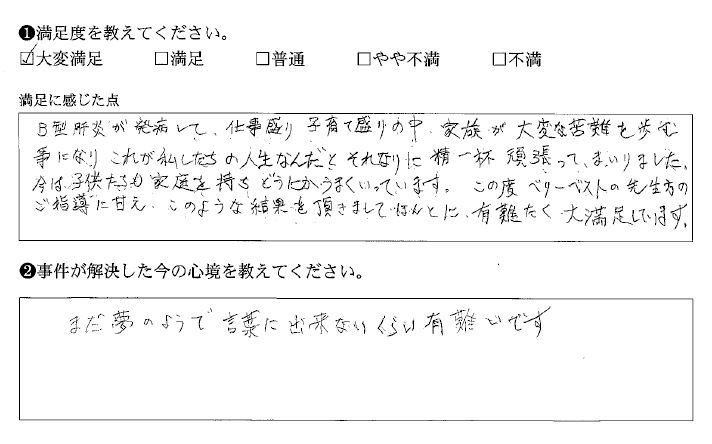 ❶満足度を教えてください。
☑大変満足 □満足 □普通 □やや不満 □不満
満足に感じた点
B型肝炎が発病して、仕事盛り子育て盛りの中、家族が大変な苦難を歩む
事になりこれが私したちの人生なんだとそれなりに精一杯頑張って、まいりました、
今は子供たちも家庭を持ちどうにかうまくいっています。この度ベリーベストの先生方の
ご指導に甘え、このような結果を頂きましてほんとに、有難たく大満足しています。
❷事件が解決した今の心境を教えてください。
まだ夢のようで言葉に出来ないくらい有難いです